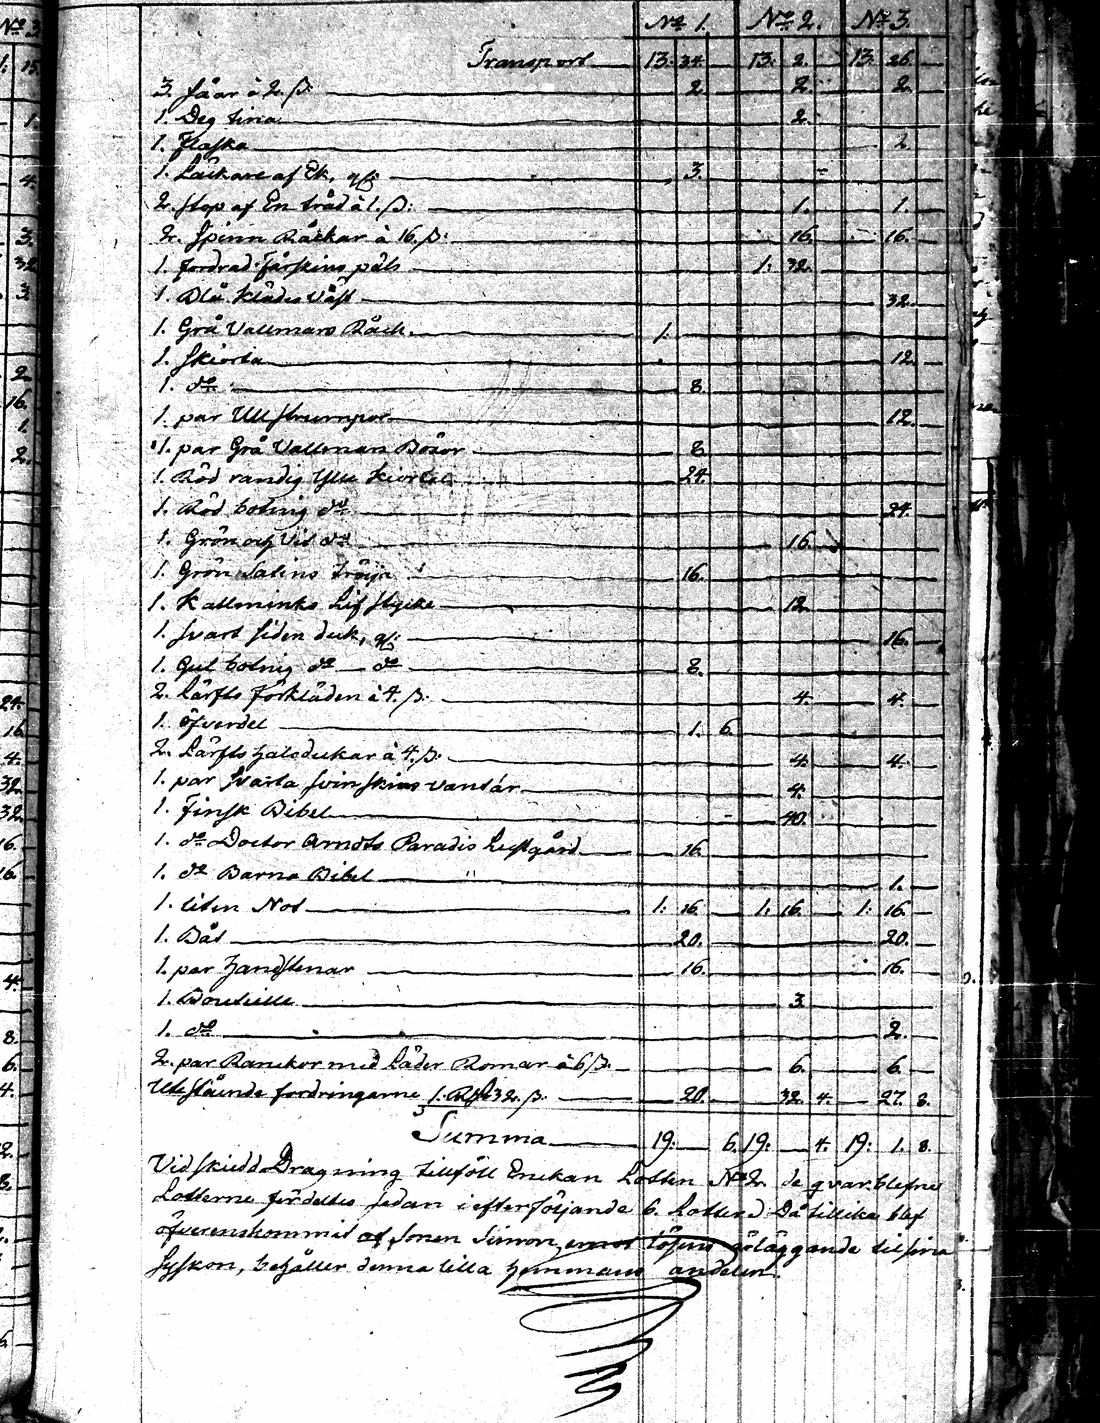 No 1. No 2. No 3.
Transport 13: 34. 13: 2. 13: 26.
3. fåar à 2. ß: 2. 2. 2.
1. Deg tina 2.
1. Flaska 2.
1. Läckare af Ek, 3. -
2. Stop af En träd à 1. ß: 1. 1.
2. Spinn Råckar à 16. ß: 16. 16.
1. fordrad Fårskins päls 1: 32.
1. Blå Klädes Väst 32.
1. Grå Vallmars Råck. 1.
1. Skiorta 12.
1. do 8.
1. par Ull Strumpor 12.
1. par Grå Vallmars Böxor 8.
1. Röd randig Ylle Kiortel 24.
1. Röd botnig do 24.
1. Grön och Vit do 16.
1. Grön Satins tröja 16.
1. Kallminks Lif stycke 12.
1. Svart Siden duk, 16.
1. Gul botnig do do 8.
2. Lärfts Förkläden à 4. ß. 4. 4.
1. öfverdel 1. 6.
2. Lärfts halsdukar à 4. ß: 4. 4.
1. par Svarta Svin Skins vantar 4.
1. Finsk Bibel 40.
1. do Doctor Arndts Paradis Lustgård 16.
1. do Barna Bibel 1.
1. liten Not 1: 16. 1: 16. 1: 16.
1. Båt 20. 20.
1. par handstenar 16. 16.
1. Bouteille 3.
1. do 2.
2. par Ranckor med Läder Romar à 6 ß. 6. 6.
Utestående fordringarne 1. 32. ß. 20. 32. 4. 27. 8.
Summa 19: 6. 19: 4. 19: 1. 8.
Vid skiedd Dragning tillföll Enckan Lotten No 2. de qvarblefne
Lotterne fördeltes sedan i efterföljande 6. Lotter Då tillika blef
öfverenskommit at Sonen Simon, emot lösens erläggande til sina
Syskon, behåller denna lilla hemmans andelen.